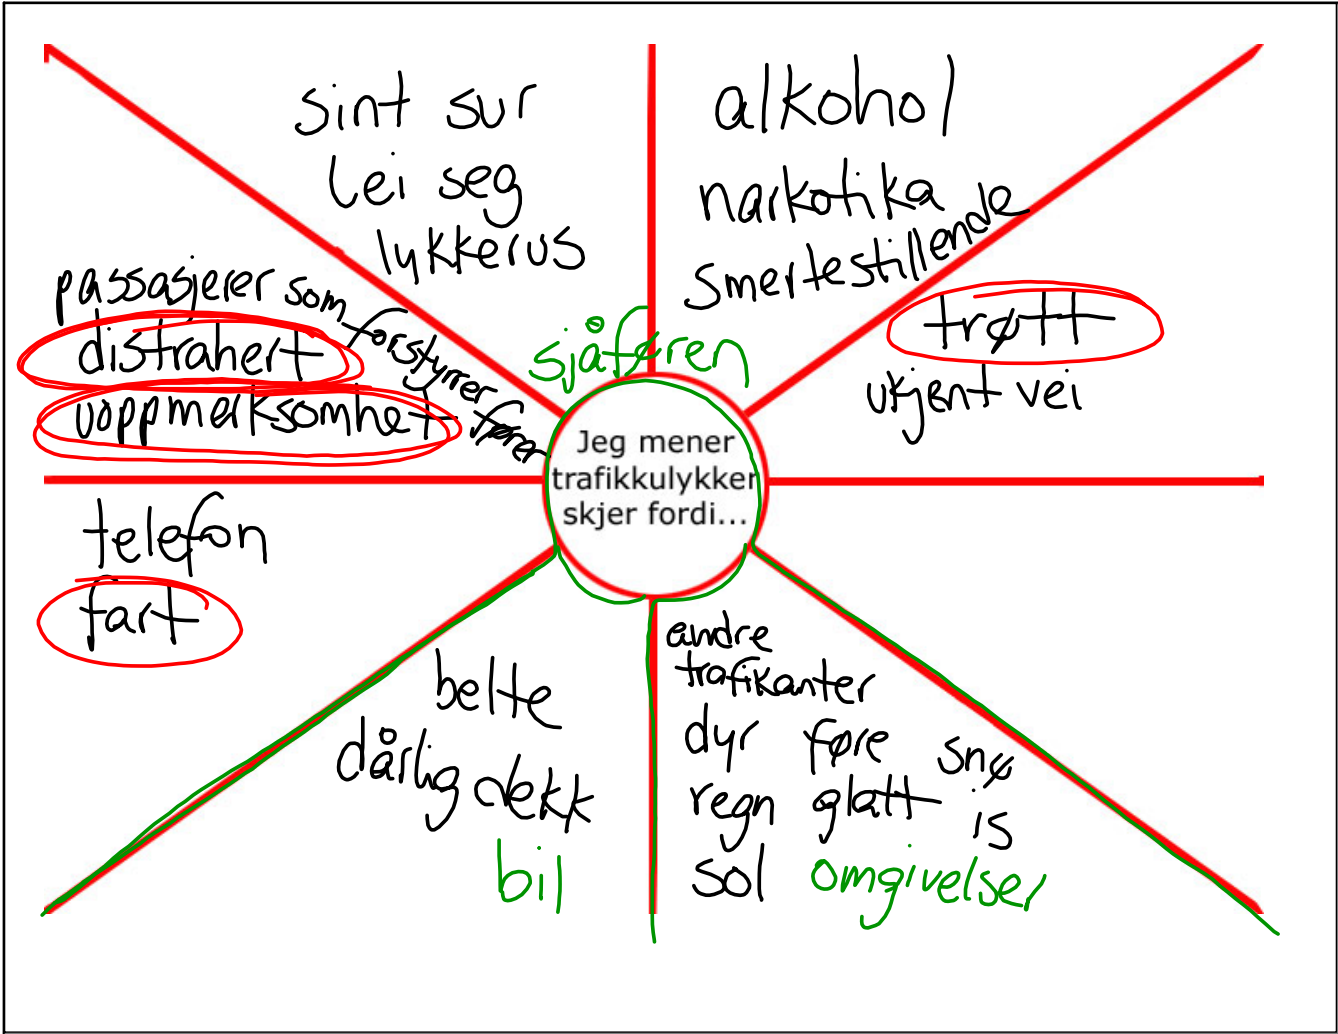 sint sur
lei seg
lykkerus
alkohol
narkotika
smertestillende
passasjerer som
forstyrrer
fører
distrahert
uoppmerksomhet
sjåføren
trøtt
ukjent vei
Jeg mener
trafikkulykker
skjer fordi...
telefon
fart
belte
dårlig dekk
bil
andre
trafikanter
dyr føre snø
regn glatt is
sol omgivelser